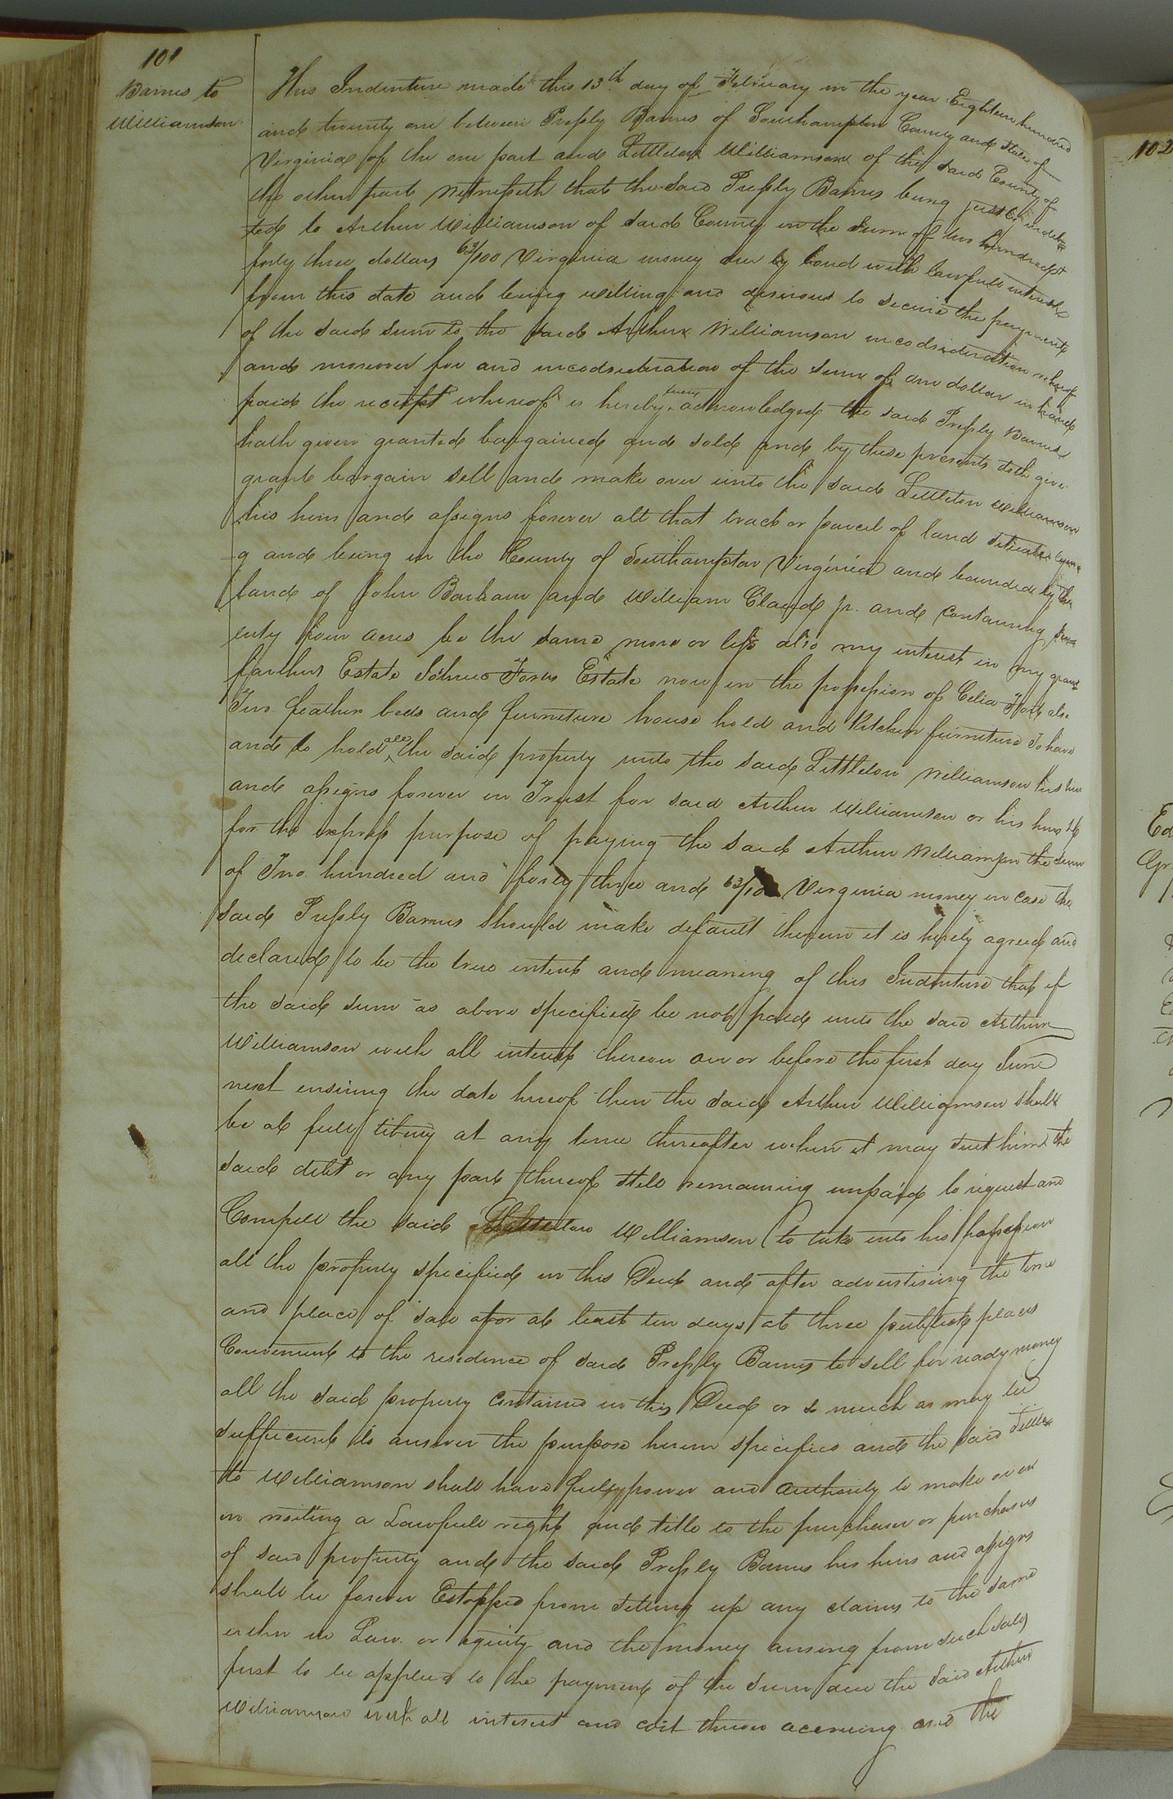 101
Barnes to
Williamson
This Indenture made this 13th day of February in the year Eighteen hundred
and twenty one between Presly Barnes of Southampton County and State of
Virginia of the one part and Littleton Williamson of the said County of
the other part Witnesseth that the said Presly Barnes being justly indeb
ted to Arthur Williamson of said County in the Sum of two hundred &
forty three dollars 63/100 Virginia money due by bond with lawfull interest
from this date and being willing and desirous to secure the payment
of the said sum to the said Arthur Williamson inconsideration whereof
and moreover for and inconsideration of the Sum of one dollar in hand
paid the receipt whereof is hereby acknowledged the said Presly Barnes
hath given granted bargained and sold and by these presents doth give
grant bargain sell and make over unto the said Littleton Williamson
his heirs and assigns forever all that tract or parcel of land situate lyin
g and being in the County of Southampton Virginia and bounded by the
land of John Barham and William Claud jr. and containing
enty four acres be the same more or less also my interest in my grand
farthers Estate Estate now in the possession of Celia also
Two feather beds and furniture house hold and Kitchen furniture To have
and to hold all the said property unto the said Littleton Williamson his heirs
and assigns forever in Trust for said Arthur Williamson or his heirs &c
for the express purpose of paying the said Arthur Williamson the Sum
of Two hundred and forty three and 63/100 Virginia money in case the
said Presly Barnes should make default therein it is hereby agreed and
declared to be the true intent and meaning of this Indenture that if
the said sum as above specified be not paid unto the said Arthur
Williamson with all interest thereon on or before the first day June
next ensuing the date hereof then the said Arthur Williamson shall
be at full liberty at any time thereafter when it may suit him the
said debt or any part thereof still remaining unpaid to request and
Compell the said Williamson to take into his possession
all the property specified in this Deed and after advertising the time
and place of sale for at least ten days at three publick places
Convenient to the residence of said Presly Barnes to sell for ready money
all the said property contained in this Deed or so much as may be
sufficient to answer the purpose herein specified and the said Little
to Williamson shall have full power and authority to make over
in writing a Lawfull right and title to the purchaser or purchasers
of said property and the said Presly Barnes his heirs and assigns
shall be forever Estopped from setting up any claims to the same
either in Law or equity and the money arising from such sales
first to be applied to the payment of the sum due the said Arthur
Williamson with all interest and cost thereon accruing and the
102